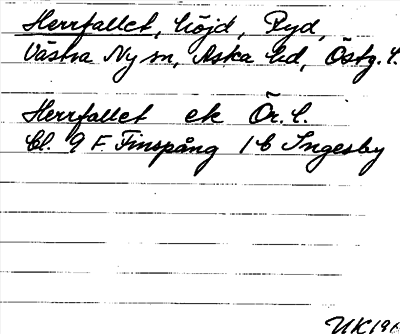 Herrfallet, höjd, Ryd,
Västra Ny sn, Aska hd, Östg. l.
Herrfallet ek Ör. l.
bl. 9 F. Finspång 1 b Ingesby
UK 196